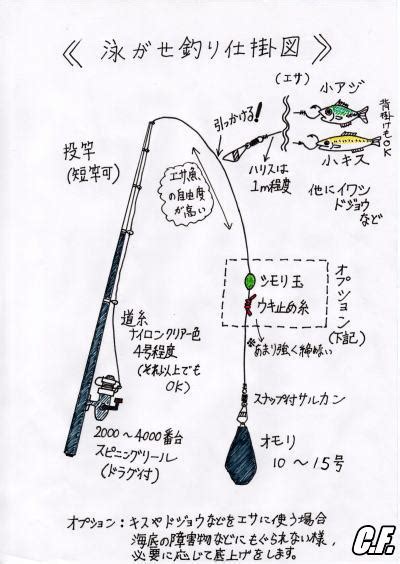 ≪ 泳がせ釣り仕掛図 ≫
(エサ)
小アジ
引っかける!
背掛けもOK
小キス
ハリスは
1m程度
他にイワシ
ドジョウ
など
投竿
(短竿可)
エサ魚
の自由度
が高い
シモリ玉
ウキ止め糸
オプション(下記)
※あまり強く締めない
道糸
ナイロンクリアー色
4号程度
(それ以上でも
OK)
スナップ付サルカン
オモリ
10〜15号
2000〜4000番台
スピニングリール
(ドラグ付)
オプション:キスやドジョウなどをエサに使う場合
海底の障害物などにもぐられない様、
必要に応じて底上げをします。
C.F.